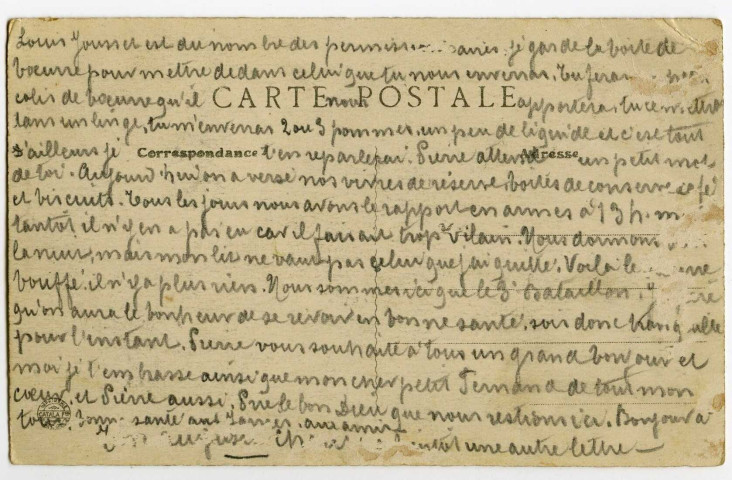 Louis Jousset est du nombre des je garde la boite de
beurre pour mettre dedans celui que tu nous enverras. Tu feras
colis de beurre qu'il nous apportera. tu en mettras
CARTE POSTALE
dans un linge. tu m'enverras 2 ou 3 pommes. un peu de liquide et c'est tout
d'ailleurs je t'en reparlerai. Pierre attend un petit mot
Correspondance Adresse
de toi. Aujourd'hui on a versé nos vivres de réserve boites de conserve café
et biscuits. Tous les jours nous avons le rapport en armes à 13 h.
tantôt il n'y en a pas eu car il faisait trop vilain. Nous dormons
la nuit, mais mon lit ne vaut pas celui que j'ai quitté. Voilà le
bouffé. il n'y a plus rien. Nous sommes ici que le 3e Bataillon.
qu'on aura le bonheur de se revoir en bonne santé. sois donc tranquille
pour l'instant. Pierre vous souhaite à tous un grand bonjour et
moi je t'embrasse ainsi que mon cher petit Fernand de tout mon
coeur. et Pierre aussi. Prie le bon Dieu que nous restions ici. Bonjour à
tous. Bonne santé aux aux amis
une autre lettre